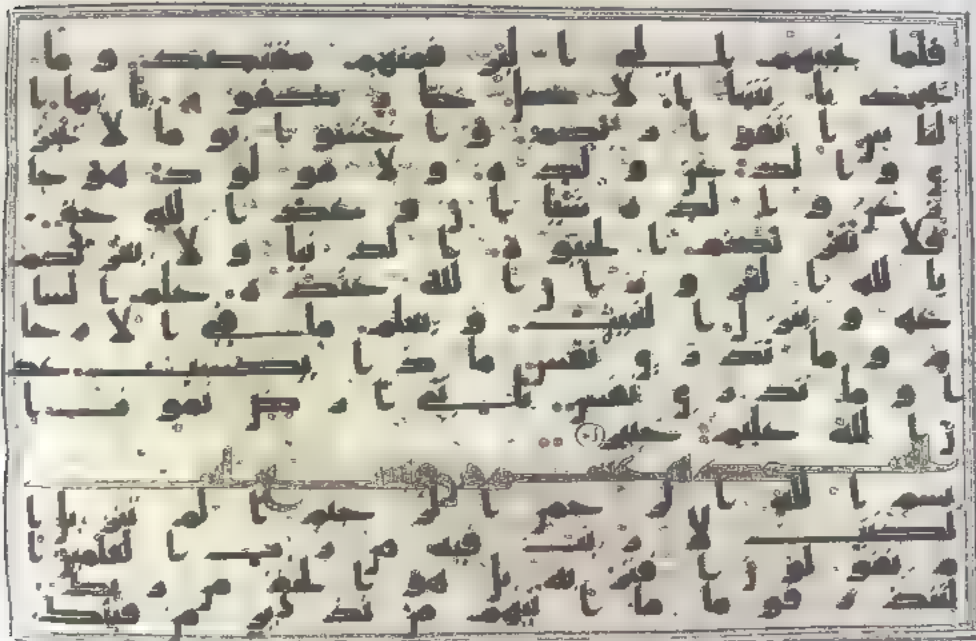 فلما نجيهم الى البر فمنهم مقتصد وما
يجحد بايتنا الا كل ختار كفور يا
ايها الناس اتقوا ربكم واخشوا يوما لا يجز
ى والد عن ولده ولا مولود هو جا
ز عن والده شيا ان وعد الله حق
فلا تغرنكم الحيوة الدنيا ولا يغرنكم
بالله الغرور ان الله عنده علم السا
عة وينزل الغيث ويعلم ما فى الارحا
م وما تدرى نفس ماذا تكسب غد
ا وما تدرى نفس باى ارض تموت ا
ن الله عليم خبير
بسم الله الرحمن الرحيم الم تنز
يل الكتب لا ريب فيه من رب العلمين ا
م يقولون افتريه بل هو الحق من ر
بك لتنذر قوما ما اتيهم من نذير من